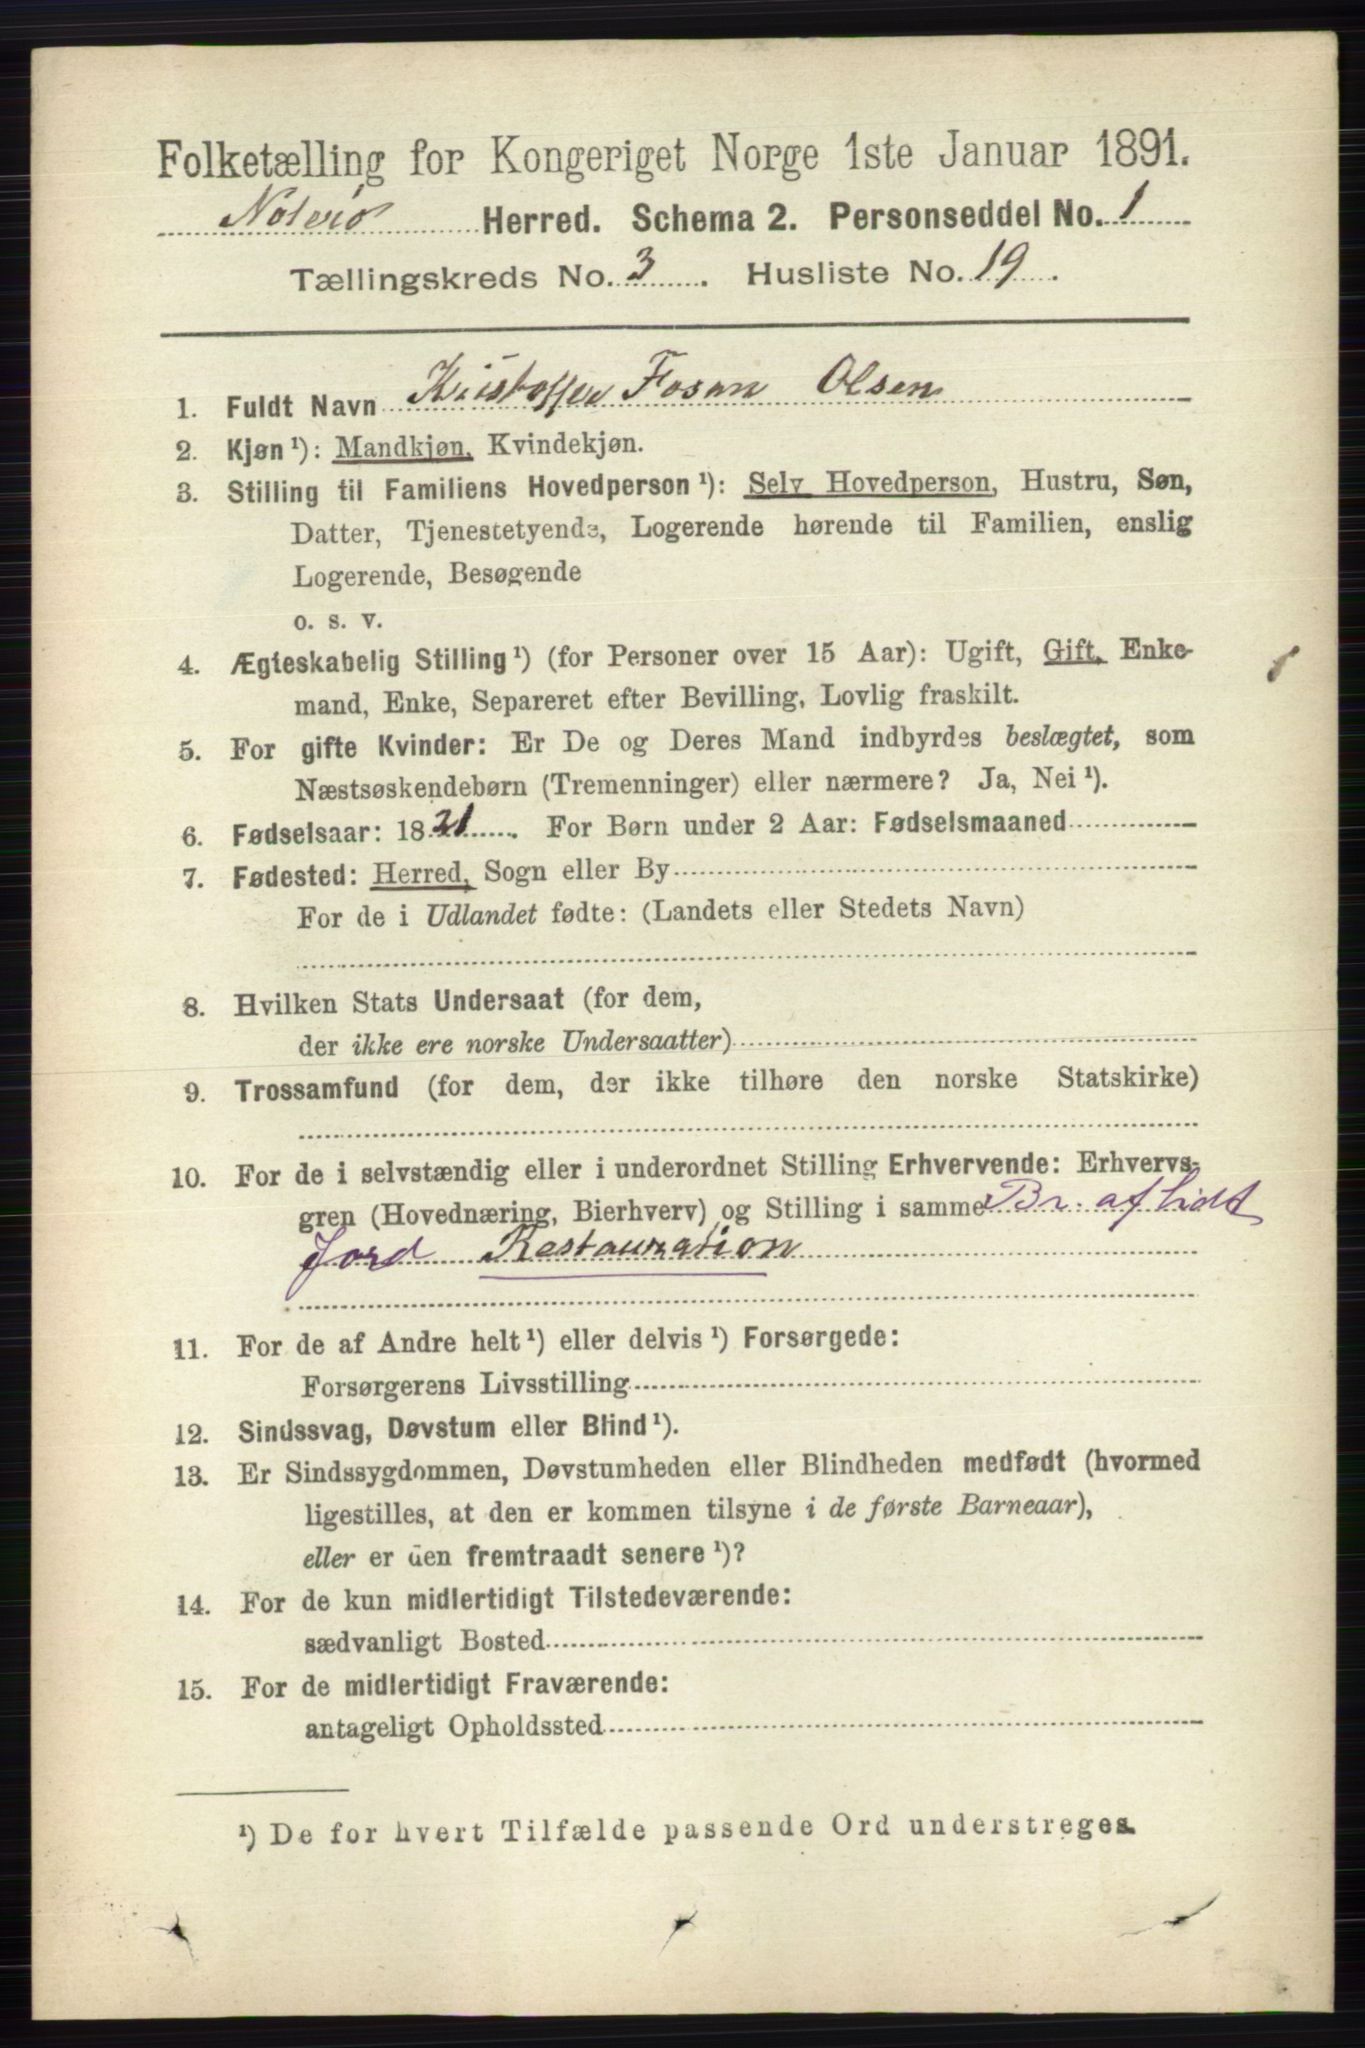 Folketælling for Kongeriget Norge 1ste Januar 1891.
Nøterø Herred. Schema 2. Personseddel No. 1
Tællingskreds No. 3. Husliste No. 19.
1. Fuldt Navn Kristoffer Fosan Olsen
2. Kjøn¹): Mandkjøn, Kvindekjøn.
3. Stilling til Familiens Hovedperson¹): Selv Hovedperson, Hustru, Søn,
Datter, Tjenestetyende, Logerende hørende til Familien, enslig
Logerende, Besøgende
o. s. v.
4. Ægteskabelig Stilling¹) (for Personer over 15 Aar): Ugift, Gift, Enke-
mand, Enke, Separeret efter Bevilling, Lovlig fraskilt.
5. For gifte Kvinder: Er De og Deres Mand indbyrdes beslægtet, som
Næstsøskendebørn (Tremenninger) eller nærmere? Ja, Nei¹).
6. Fødselsaar: 1821. For Børn under 2 Aar: Fødselsmaaned
7. Fødested: Herred, Sogn eller By
For de i Udlandet fødte: (Landets eller Stedets Navn)
8. Hvilken Stats Undersaat (for dem,
der ikke ere norske Undersaatter)
9. Trossamfund (for dem, der ikke tilhøre den norske Statskirke)
10. For de i selvstændig eller i underordnet Stilling Erhvervende: Erhvervs-
gren (Hovednæring, Bierhverv) og Stilling i samme Br. af lidt
Jord Restauration
11. For de af Andre helt¹) eller delvis¹) Forsørgede:
Forsørgerens Livsstilling
12. Sindssvag, Døvstum eller Blind¹).
13. Er Sindssygdommen, Døvstumheden eller Blindheden medfødt (hvormed
ligestilles, at den er kommen tilsyne i de første Barneaar),
eller er den fremtraadt senere¹)?
14. For de kun midlertidigt Tilstedeværende:
sædvanligt Bosted
15. For de midlertidigt Fraværende:
antageligt Opholdssted
¹) De for hvert Tilfælde passende Ord understreges.